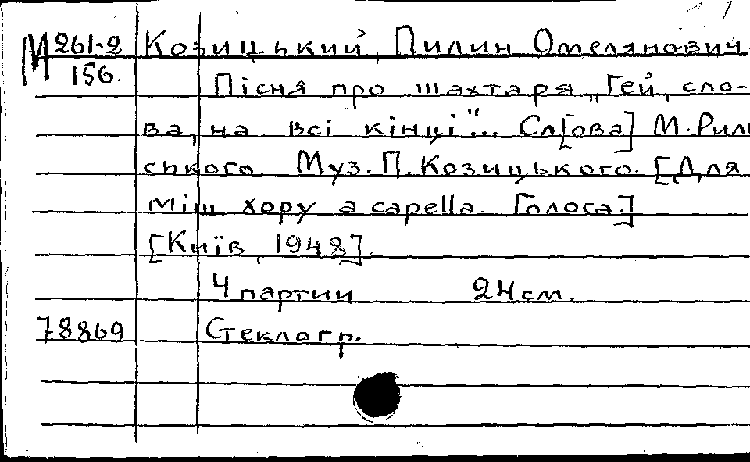 М 261-2 Козицький, Пилип Омелянович
156. Пісня про шахтаря „Гей, сло-
ва, на всі кінці"... Сл[ова] М. Рил
ського Муз. П. Козицького. [Для
міш хору a capella. Голоса.]
[Київ, 1948].
4 партии 24 см.
78869 Стеклогр.